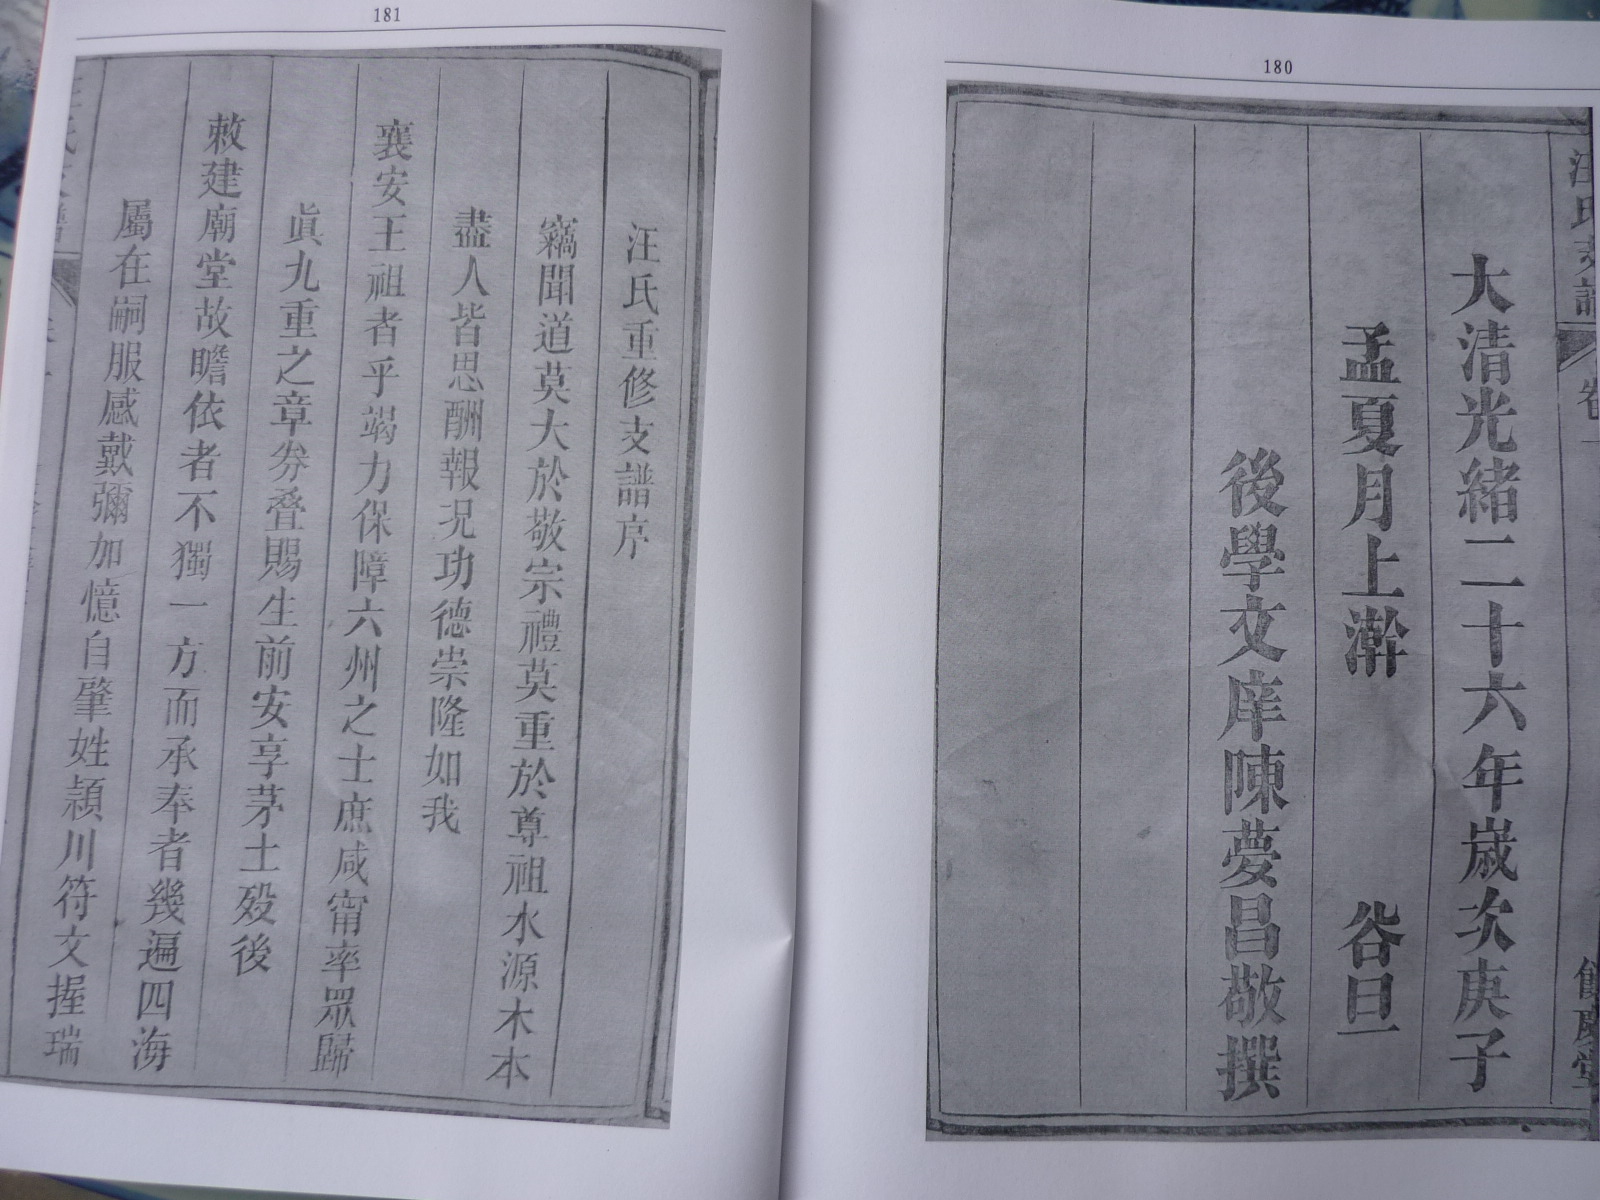 180
汪氏支譜
卷一
餘慶堂
大清光緒二十六年歲次庚子
孟夏月上澣 谷旦
後學文庠陳夢昌敬撰
181
汪氏重修支譜序
竊聞道莫大於敬宗禮莫重於尊祖水源木本
盡人皆思酬報況功德崇隆如我
襄安王祖者乎竭力保障六州之士庶咸甯率眾歸
眞九重之章劵叠賜生前安享茅土殁後
敕建廟堂故瞻依者不獨一方而承奉者幾遍四海
屬在嗣服感戴彌加憶自肇姓潁川符文握瑞